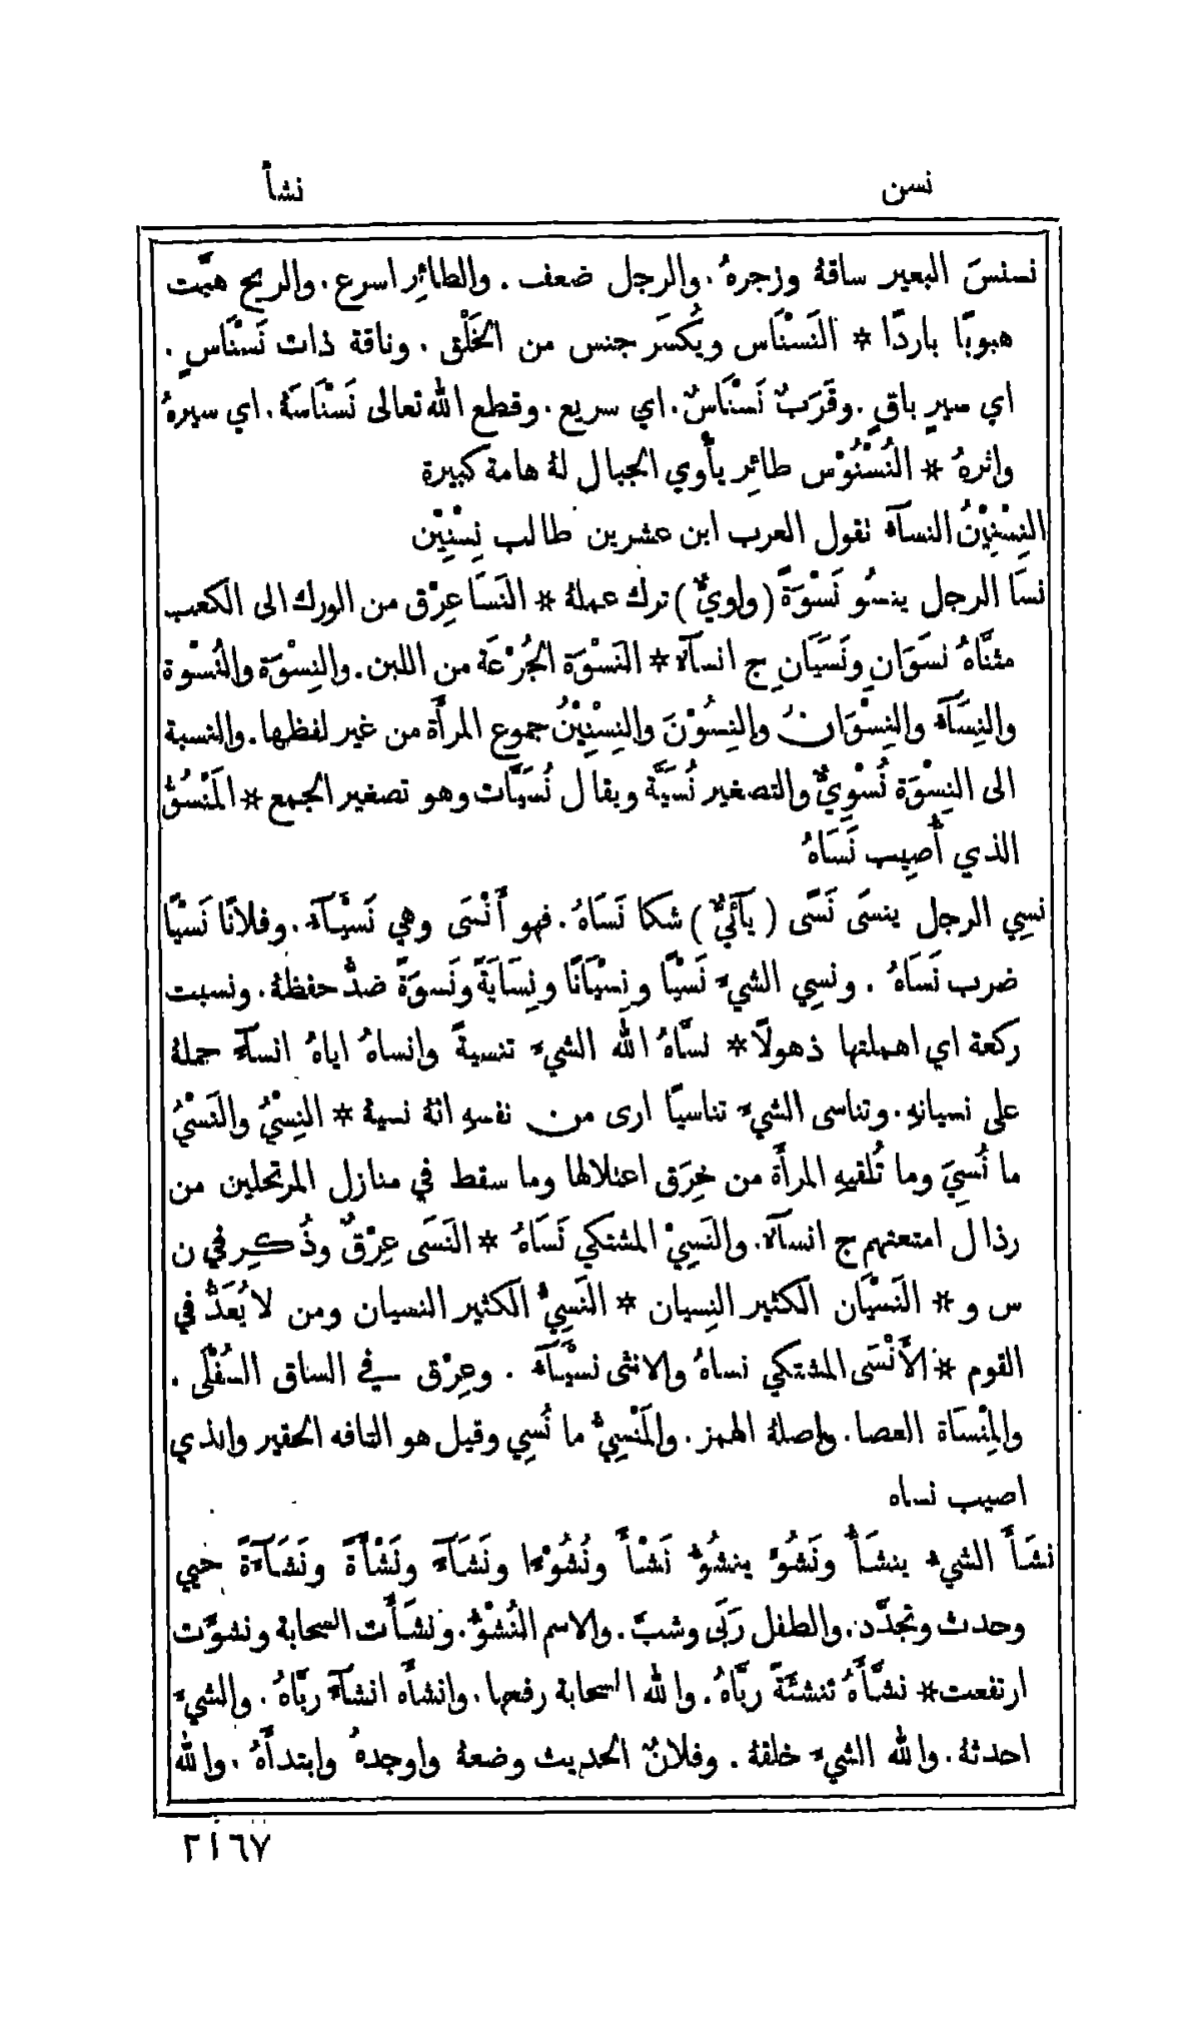 نسن
نشأ
نسنسَ البعير ساقهُ وزجرهُ. والرجل ضعف. والطائِر اسرع. والريح هبَّت
هبوبًا باردًا * النَسْنَاس ويُكسَر جنس من الخَلْق. وناقة ذات نَسْنَاسٍ.
اي سيرٍ باقٍ. وقَرَبٌ نَسْنَاسٌ. اي سريع. وقطع الله تعالى نَسْنَاسَهُ. اي سيرهُ
واثرهُ * النُسْنُوْس طائِر يأْوي الجبال لهُ هامة كبيرة
النِسْنِيْنُ النسآء تقول العرب ابن عشرين طالب نِسْنِيْن
نسَا الرجل ينسُو نَسْوَةً (واويٌّ) ترك عملهُ * النَسَا عِرْق من الورك الى الكعب
مثنَّاهُ نسَوَانِ ونَسَيَانِ ج انسآء * النَسْوَة الجُرْعَة من اللبن. والنِسْوَة والنُسْوة
والنِسَآء والنِسْوَان والنِسُوْنَ والنِسْنِيْنُ جموع المرأَة من غير لفظها. والنسبة
الى النِسْوَة نُسْوِيٌّ والتصغير نُسَيَّة ويقال نُسَيَّات وهو تصغير الجمع * المَنْسُوُّ
الذي أُصِيب نَسَاهُ
نسِي الرجل ينسَى نَسًى (يآئيٌّ) شكا نَسَاهُ. فهو أَنْسَى وهي نَسْيَآء. وفلانًا نَسْيًا
ضرب نَسَاهُ. ونسِي الشيءَ نَسْيًا ونِسْيَانًا ونِسَايَةً ونَسوَةً ضدُّ حفظهُ. ونسيت
ركعة اي اهملتها ذهولًا * نسَّاهُ الله الشيءَ تنسيةً وانساهُ اياهُ انسآءً حملهُ
على نسيانهِ. وتناسى الشيءَ تناسيًا ارى من نفسهِ انهُ نسيهُ * النِسْيُ والنَسْيُ
ما نُسِيَ وما تُلقيهِ المرأَة من خِرَق اعتلالها وما سقط في منازل المرتحلين من
رذال امتعتهم ج انسآء. والنَسِيْ المشتكي نَسَاهُ * النَسَى عِرْقٌ وذُكِر في ن
س و * النَسْيَان الكثير النِسيان * النَسِيُّ الكثير النسيان ومن لا يُعَدُّ في
القوم * الأَنْسَى المشتكي نساهُ والانثى نسْيَآء. وعِرْق في الساق السُفْلَى.
والمِنْسَاة العصا. واصلهُ الهمز. والمَنْسِيُّ ما نُسِي وقيل هو التافه الحقير والذي
اصيب نساه
نشَأَ الشيءُ ينشَأُ ونَشُوَ ينشُوءُ نَشْأً ونُشُوْءًا ونَشَآءً ونَشْأَةً ونَشَآءَةً حيي
وحدث وتجدَّد. والطفل رَبَى وشبَّ. والاسم النُشْوءُ. ونشَأَت السحابة ونشوَّت
ارتفعت * نشَّأَهُ تنشئَةً ربَّاهُ. والله السحابة رفعها. وانشأَه انشآءً ربَّاهُ. والشيءَ
احدثهُ. والله الشيءَ خلقهُ. وفلانٌ الحديث وضعهُ واوجدهُ وابتدأَهُ. والله
٢١٦٧